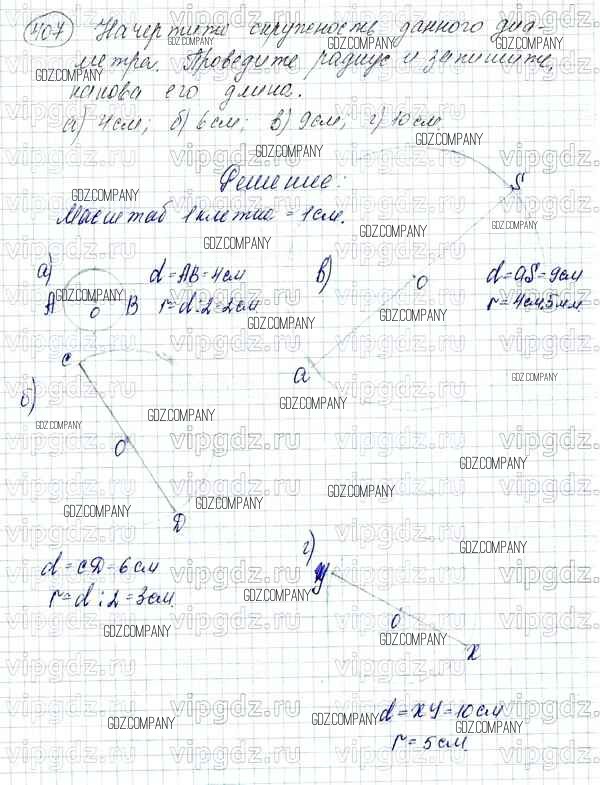 407 Начертите окружность данного диа-
метра. Проведите радиус и запишите,
какова его длина.
а) 4см; б) 6см; в) 9см; г) 10см
Решение:
Масштаб 1клетка = 1см.
а) d = AB = 4см
A O B r = d : 2 = 2см
в) S
O
a
d = aS = 9см
r = 4см5мм
б) C
O
D
d = CD = 6см
r = d : 2 = 3см.
г) У
O
X
d = XУ = 10см
r = 5см.
GDZ.COMPANY
vipgdz.ru